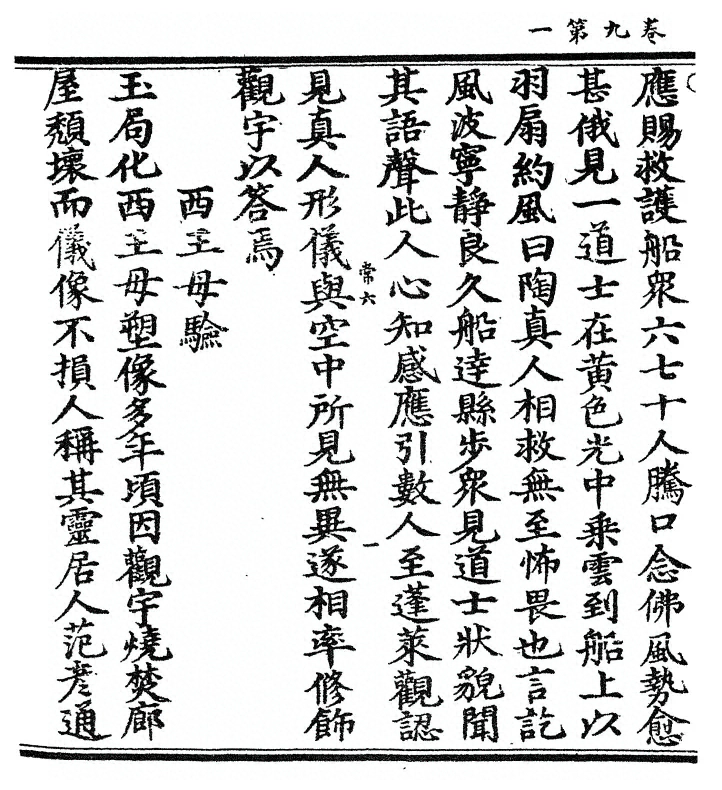 卷九第一
應賜救護船眾六七十人騰口念佛風勢愈
甚俄見一道士在黃色光中乘雲到船上以
羽扇約風曰陶真人相救無至怖畏也言訖
風波寧靜良久船達縣步眾見道士狀貌聞
其語聲此人心知感應引數人至蓬萊觀認
常六
一
見真人形儀與空中所見無異遂相率修飾
觀宇以答焉
西王母驗
玉局化西王母塑像多年頃因觀宇燒焚廊
屋頹壞而儀像不損人稱其靈居人范彥通